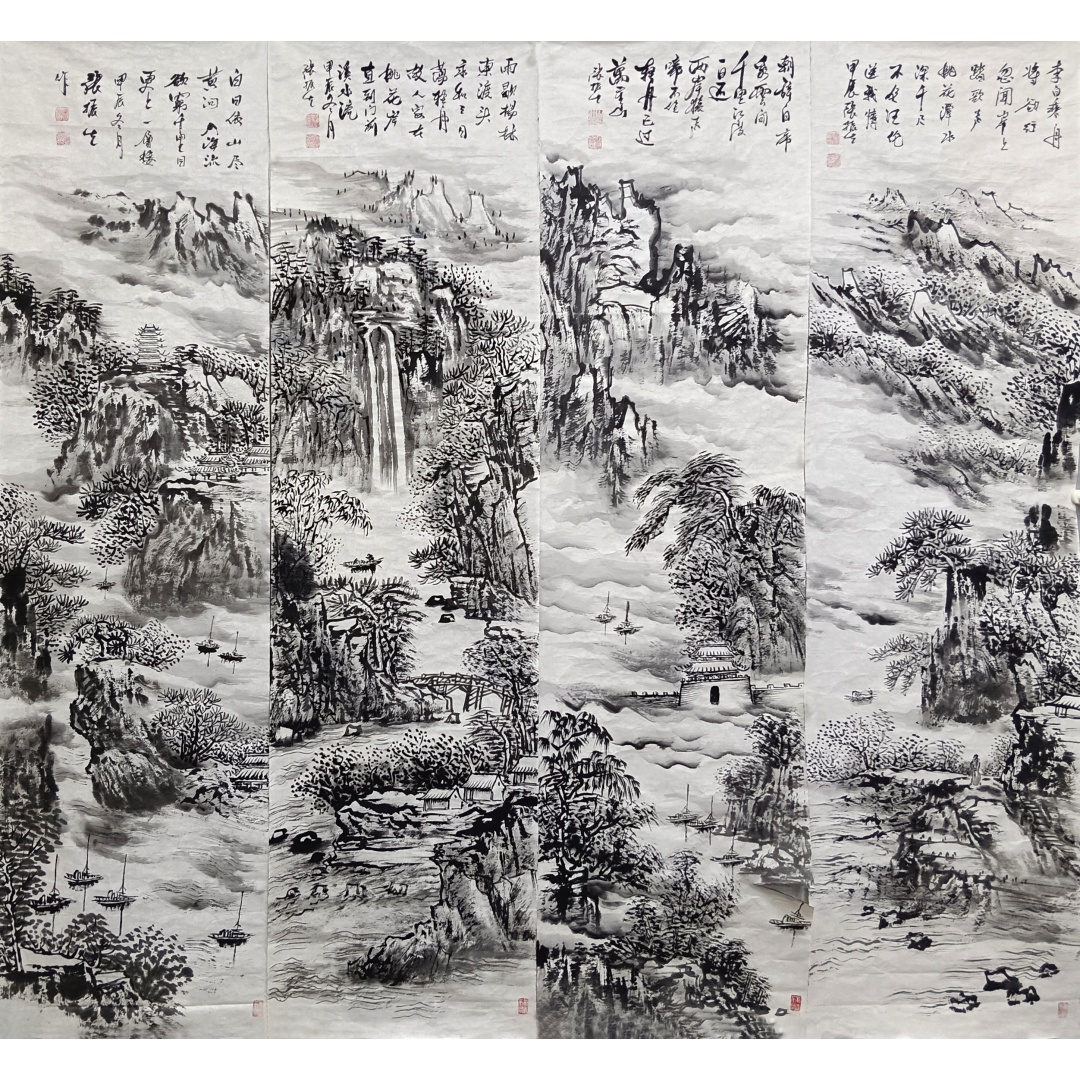 李白乘舟
将欲行
忽闻岸上
踏歌声
桃花潭水
深千尺
不及汪伦
送我情
甲辰张振生
朝辞白帝
彩雲间
千里江陵
一日还
两岸猿声
啼不住
轻舟已过
萬重山
张振生
雨歇杨林
东渡头
永和三日
荡轻舟
故人家在
桃花岸
直到门前
溪水流
甲辰冬月
张振生
白日依山尽
黄河入海流
欲窮千里目
更上一層楼
甲辰冬月
张振生
作